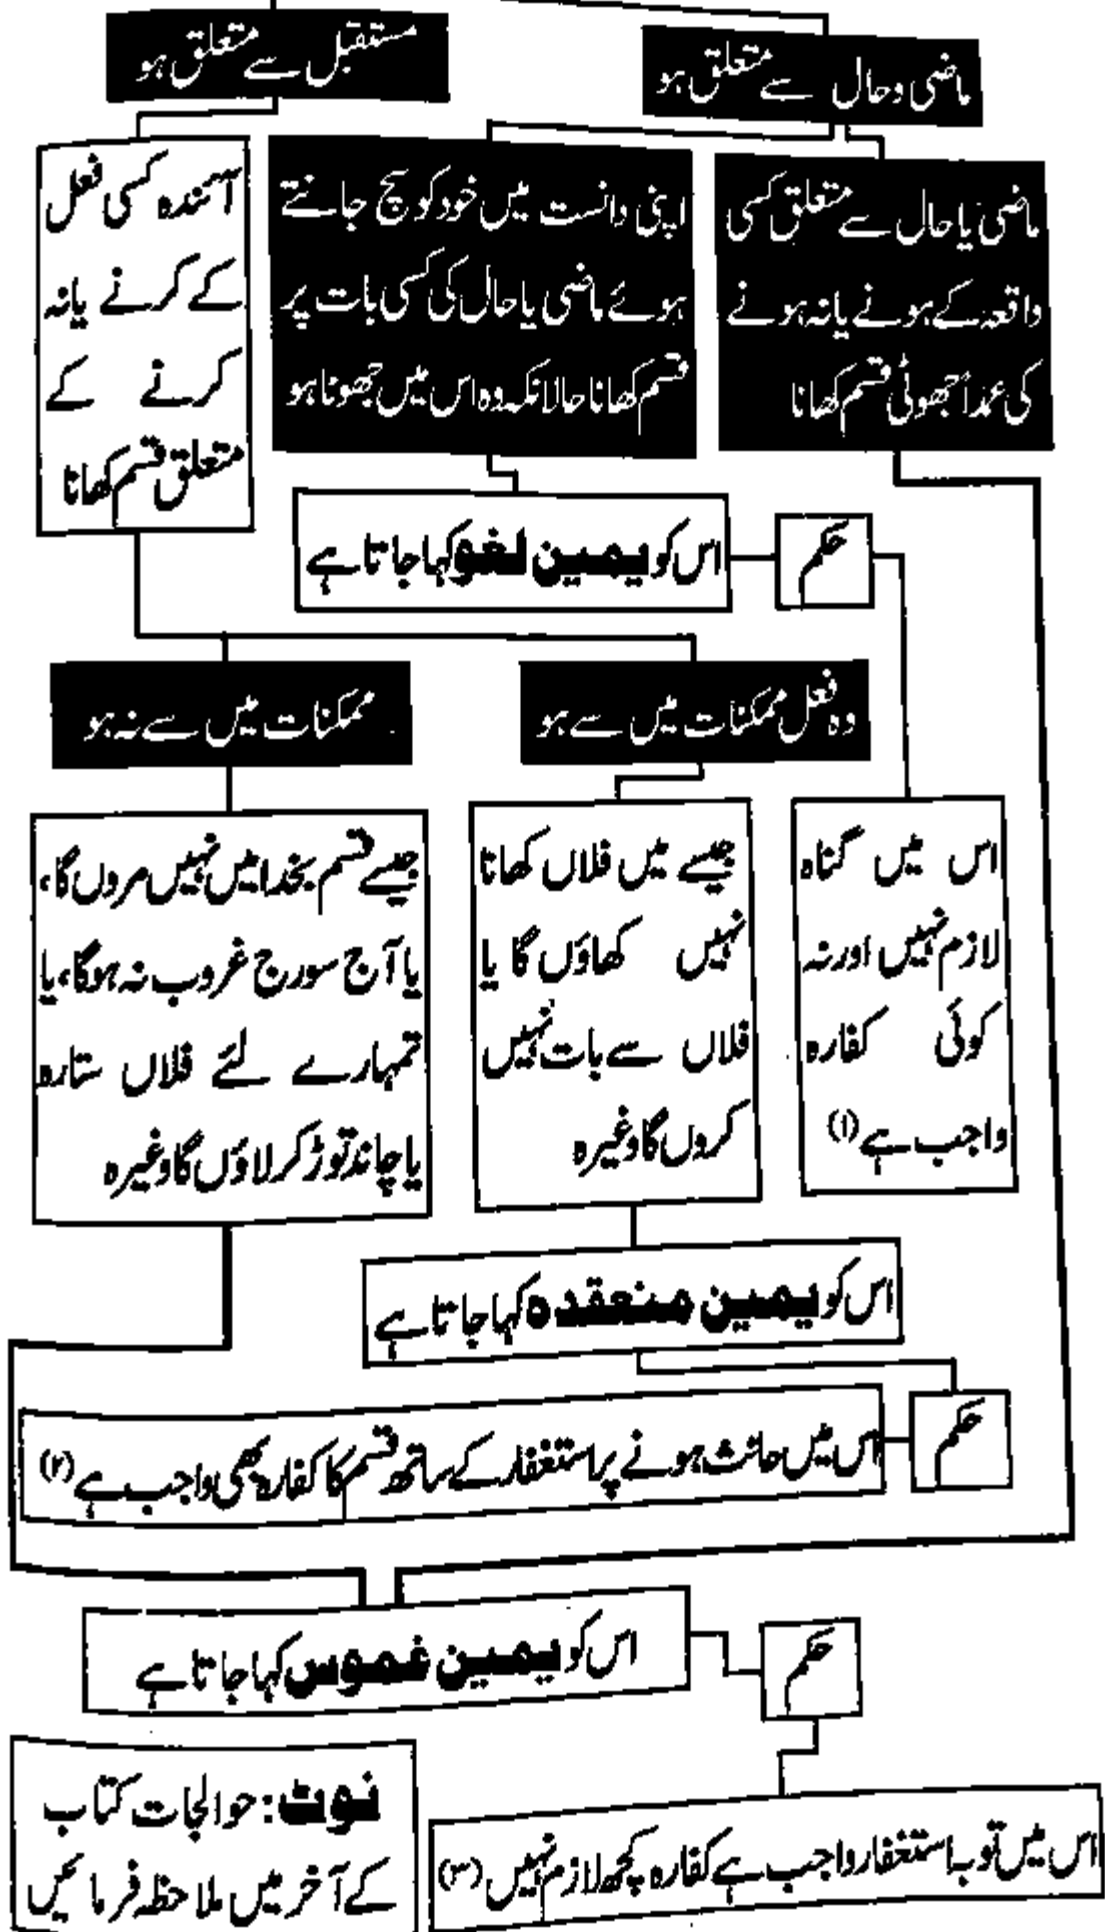 ماضی وحال سے متعلق ہو
مستقبل سے متعلق ہو
ماضی یا حال سے متعلق کسی
واقعہ کے ہونے یا نہ ہونے
کی عمداً جھوٹی قسم کھانا
اپنی دانست میں خود کو سچ جانتے
ہوئے ماضی یا حال کی کسی بات پر
قسم کھانا حالانکہ وہ اس میں جھوٹا ہو
آئندہ کسی فعل
کے کرنے یا نہ
کرنے کے
متعلق قسم کھانا
اس کو یمین لغو کہا جاتا ہے
حکم
وہ فعل ممکنات میں سے ہو
ممکنات میں سے نہ ہو
اس میں گناہ
لازم نہیں اور نہ
کوئی کفارہ
واجب ہے (۱)
جیسے میں فلاں کھانا
نہیں کھاؤں گا یا
فلاں سے بات نہیں
کروں گا وغیرہ
جیسے قسم بخدا میں نہیں مروں گا،
یا آج سورج غروب نہ ہوگا، یا
تمہارے لئے فلاں ستارہ
یا چاند توڑ کر لاؤں گا وغیرہ
اس کو یمین منعقدہ کہا جاتا ہے
حکم
اس میں حانث ہونے پر استغفار کے ساتھ قسم کا کفارہ بھی واجب ہے (۲)
اس کو یمین غموس کہا جاتا ہے
حکم
اس میں توبہ استغفار واجب ہے کفارہ کچھ لازم نہیں (۳)
نوٹ: حوالجات کتاب
کے آخر میں ملاحظہ فرمائیں